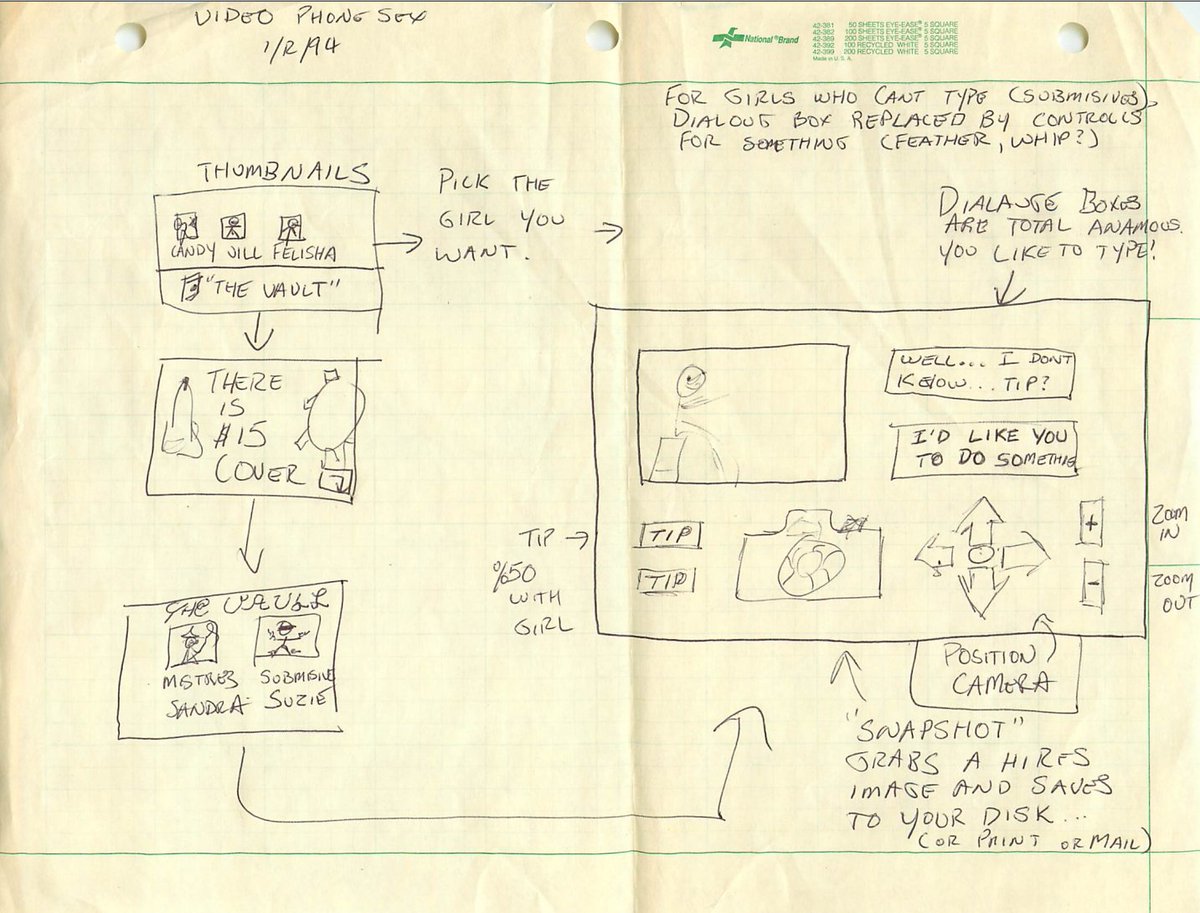 VIDEO PHONE SEX
1/2/94
National® Brand
42-381 50 SHEETS EYE-EASE® 5 SQUARE
42-382 100 SHEETS EYE-EASE® 5 SQUARE
42-389 200 SHEETS EYE-EASE® 5 SQUARE
42-392 100 RECYCLED WHITE 5 SQUARE
42-399 200 RECYCLED WHITE 5 SQUARE
Made in U. S. A.
FOR GIRLS WHO CANT TYPE (SUBMISIVES),
DIALOUG BOX REPLACED BY CONTROLLS
FOR SOMETHING (FEATHER, WHIP?)
THUMBNAILS
CANDY JILL FELISHA
"THE VAULT"
PICK THE
GIRL YOU
WANT.
DIALAUGE BOXES
ARE TOTAL ANAMOUS.
YOU LIKE TO TYPE!
THERE
IS
$15
COVER
THE VAULT
MISTRES
SANDRA
SUBMISIVE
SUZIE
WELL... I DONT
KNOW... TIP?
I'D LIKE YOU
TO DO SOMETHIG
TIP
TIP
TIP
%50
WITH
GIRL
+
-
ZOOM
IN
ZOOM
OUT
POSITION
CAMERA
"SNAPSHOT"
GRABS A HIRES
IMAGE AND SAVES
TO YOUR DISK...
(OR PRINT OR MAIL)